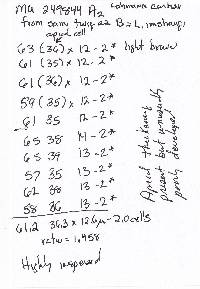 MA 349844 A2
from same twig as B = L.
apical cell
63 (36) x 12-2* light brown
61 (35) x 12-2*
61 (36) x 12-2*
59 (35) x 12-2*
61 35 12-2*
65 38 14-2*
65 39 13-2*
57 35 13-2*
62 38 13-2*
58 36 13-2*
61.2 36.3 x 12.6µ - 2.0 cells
ratio = 1.458
Highly
Apical thickening
present but
developed
poorly